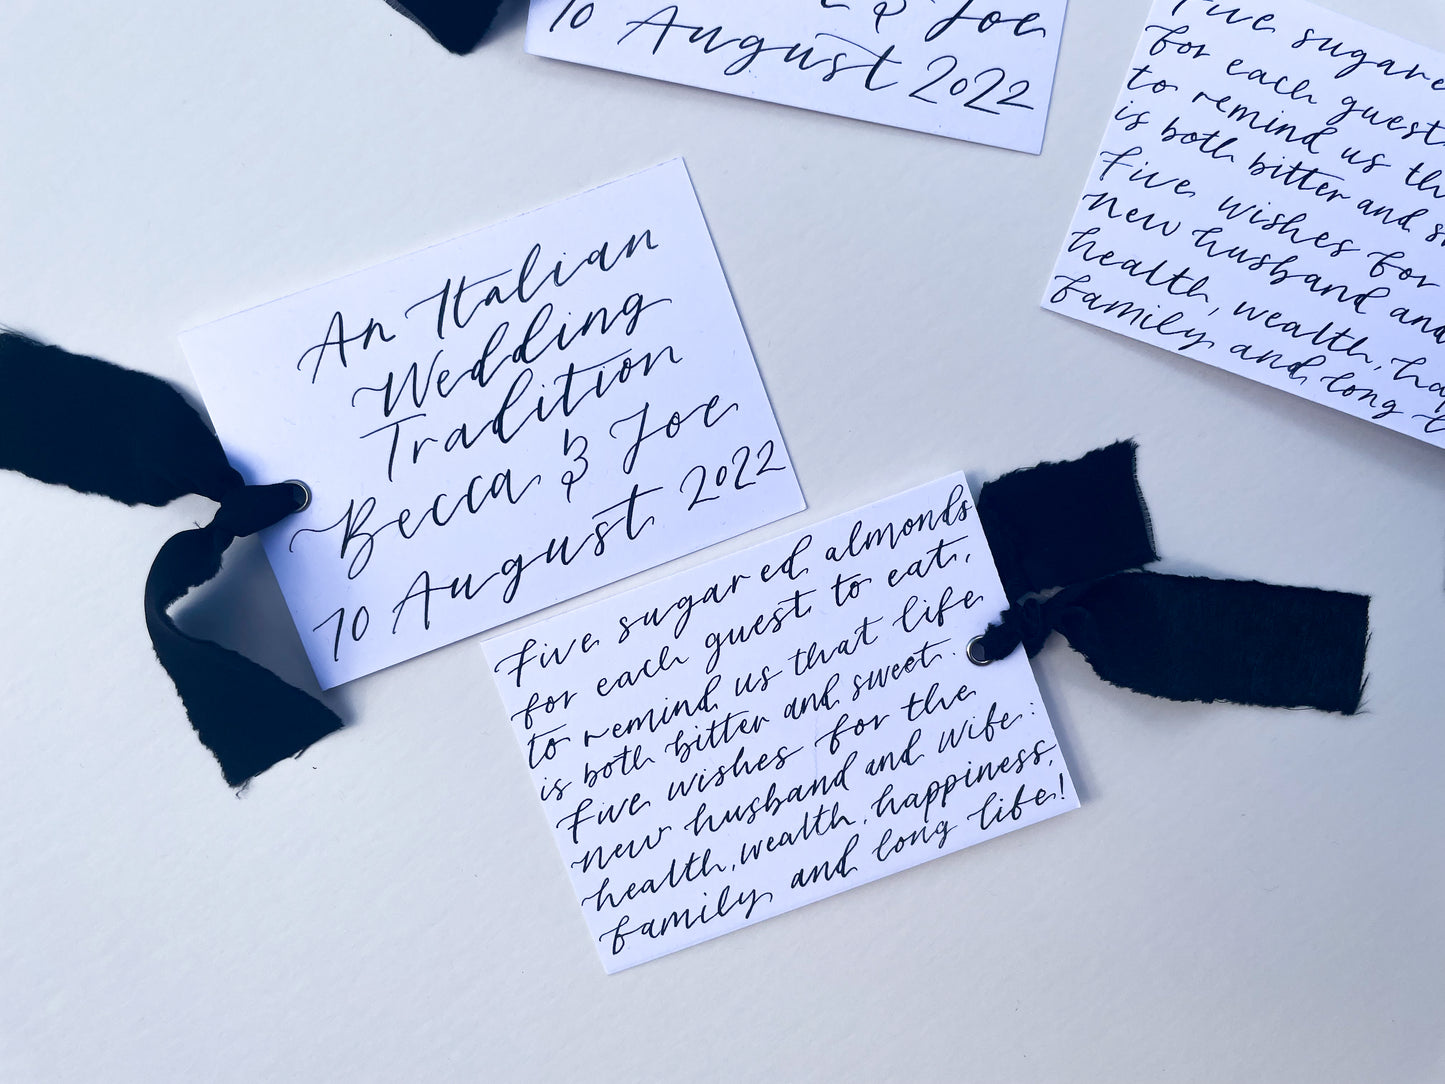 & Joe
10 August 2022
Five sugared
for each guest
to remind us th
is both bitter and s
Five wishes for
new husband and
health, wealth, ha
family and long
An Italian
Wedding
Tradition
Becca & Joe
10 August 2022
Five sugared almonds
for each guest to eat,
to remind us that life
is both bitter and sweet.
Five wishes for the
new husband and wife:
health, wealth, happiness,
family and long life!